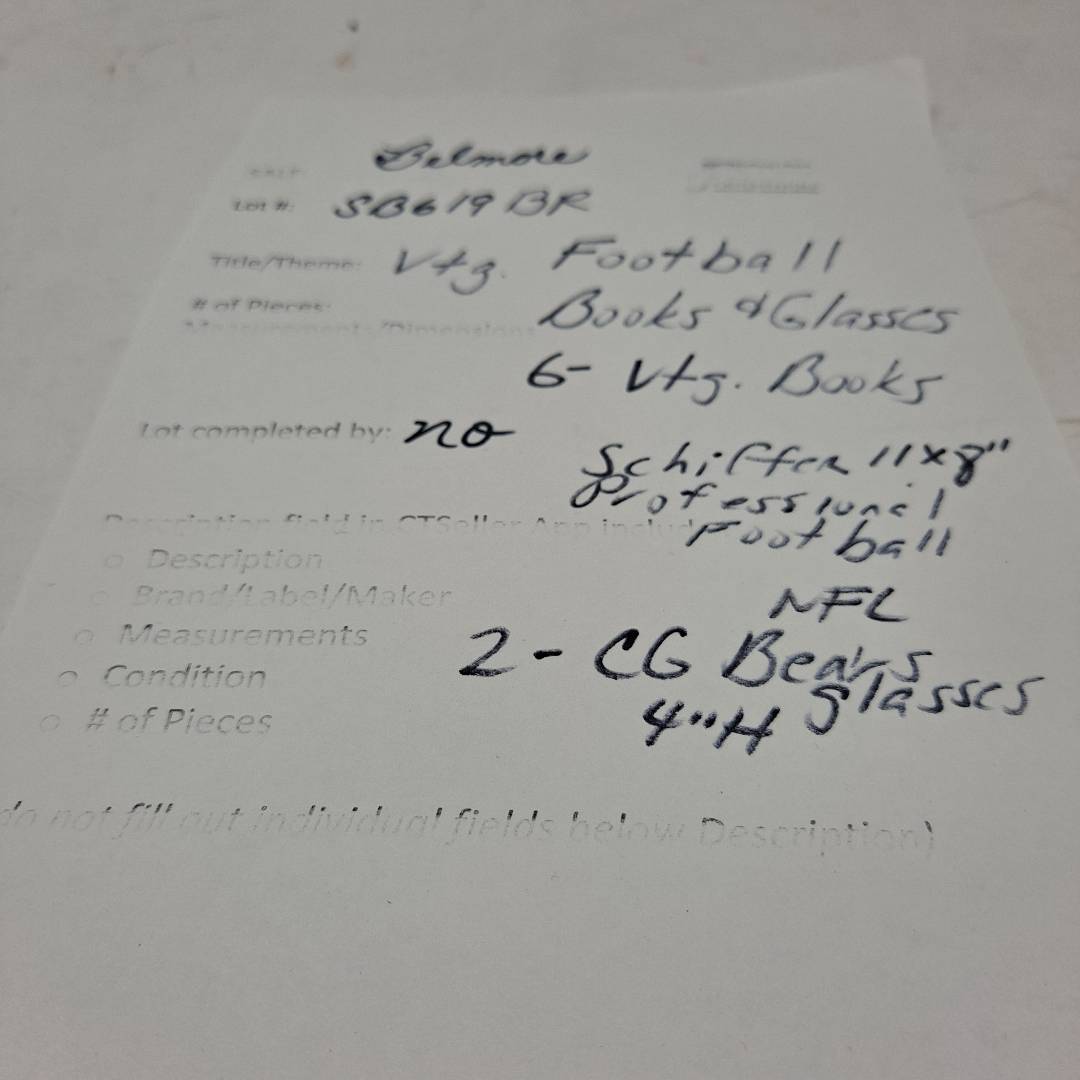 Belmore
Lot #: SB619BR
Title/Theme: Vtg. Football
# of Pieces: Books & Glasses
Measurements/Dimensions
6- Vtg. Books
Lot completed by: no
Schiffer 11x8"
Professional
Description field in CTSeller App includ
Football
o Description
o Brand/Label/Maker
NFL
o Measurements
2- CG Bears
o Condition
glasses
4"H
o # of Pieces
do not fill out individual fields below Description)